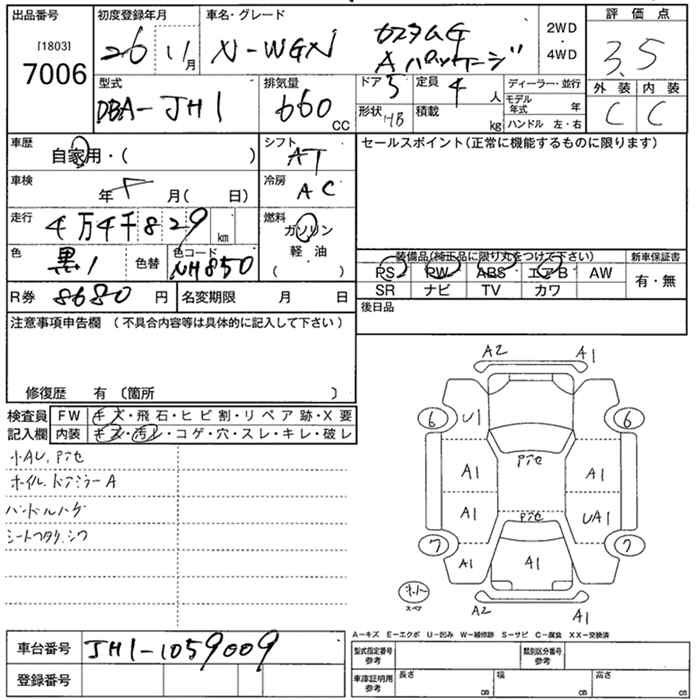 出品番号
[1803]
7006
初度登録年月
26 11月
車名・グレード
N-WGN カスタムG
Aパッケージ
2WD
4WD
評価点
3.5
外装 内装
C C
型式
DBA-JH1
排気量
660 CC
ドア 5
形状 HB
定員 4 人
積載 kg
ディーラー・並行
モデル年式 年
ハンドル 左・右
車歴
自家用・( )
シフト
AT
車検
年 月( 日)
冷房
AC
走行
4万4千829 km
燃料
ガソリン
軽・油
( )
色
黒1
色替
色コード
NH850
R券 8680 円
名変期限 月 日
セールスポイント(正常に機能するものに限ります)
装備品(純正品に限り丸をつけて下さい)
PS PW ABS エアB AW
SR ナビ TV カワ
新車保証書
有・無
後日品
注意事項申告欄 (不具合内容等は具体的に記入して下さい)
修復歴 有 〔箇所 〕
検査員記入欄
FW キズ・飛石・ヒビ割・リペア跡・X要
内装 キズ・汚レ・コゲ・穴・スレ・キレ・破レ
小AU、Pアセ
ホイル、ドアミラーA
ハンドルハゲ
シートフタク、シワ
A2 A1
6 U1 6
Pアセ
A1 A1
Pアセ
A1 UA1
7 A1 A1 7
スペア
A2 A1
A-キズ E-エクボ U-凹み W-補修跡 S-サビ C-腐食 XX-交換済
車台番号
JH1-1059009
登録番号
型式指定番号
参考
類別区分番号
参考
車庫証明用
参考
長さ cm
幅 cm
高さ cm